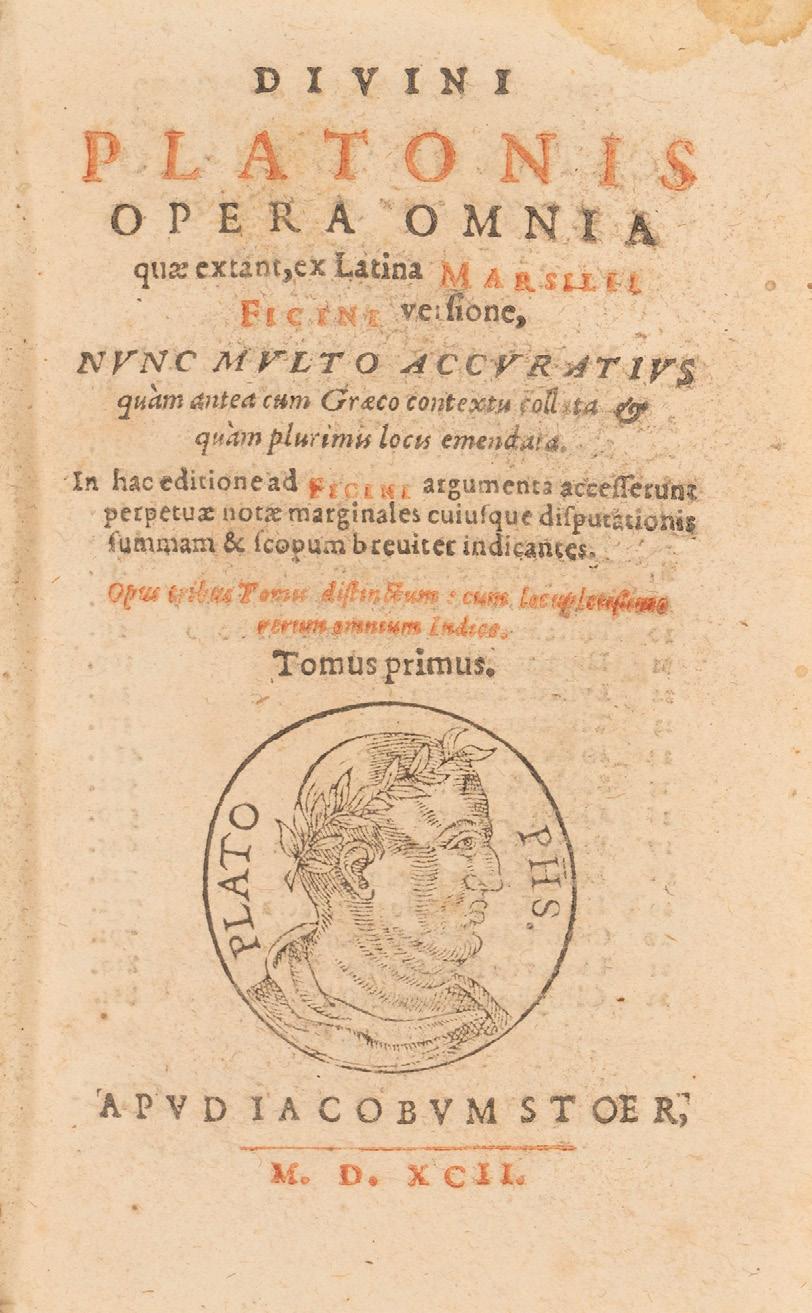 DIVINI
PLATONIS
OPERA OMNIA
quæ extant, ex Latina MARSILII
FICINI versione,
NVNC MVLTO ACCVRATIVS
quàm antea cum Græco contextu collata &
quàm plurimis locis emendata.
In hac editione ad FICINI argumenta accesserunt
perpetuæ notæ marginales cuiusque disputationis
summam & scopum breuiter indicantes.
Opus tribus Tomis distinctum: cum locupletissimo
rerum omnium Indice.
Tomus primus.
PLATO PH̄S.
APVD IACOBVM STOER,
M. D. XCII.